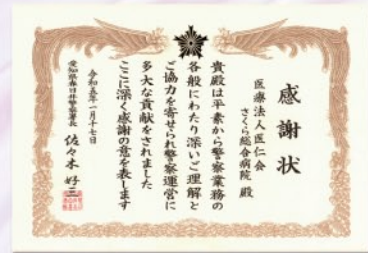 感謝状
医療法人医仁会
さくら総合病院 殿
貴殿は平素から警察業務の
各般にわたり深いご理解と
ご協力を寄せられ警察運営に
多大な貢献をされました
ここに深く感謝の意を表します
令和五年一月十七日
愛知県春日井警察署長 佐々木 好三